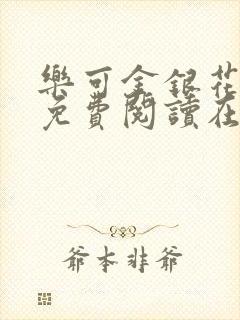 樂可金銀花
免費閱讀在
爺本非爺